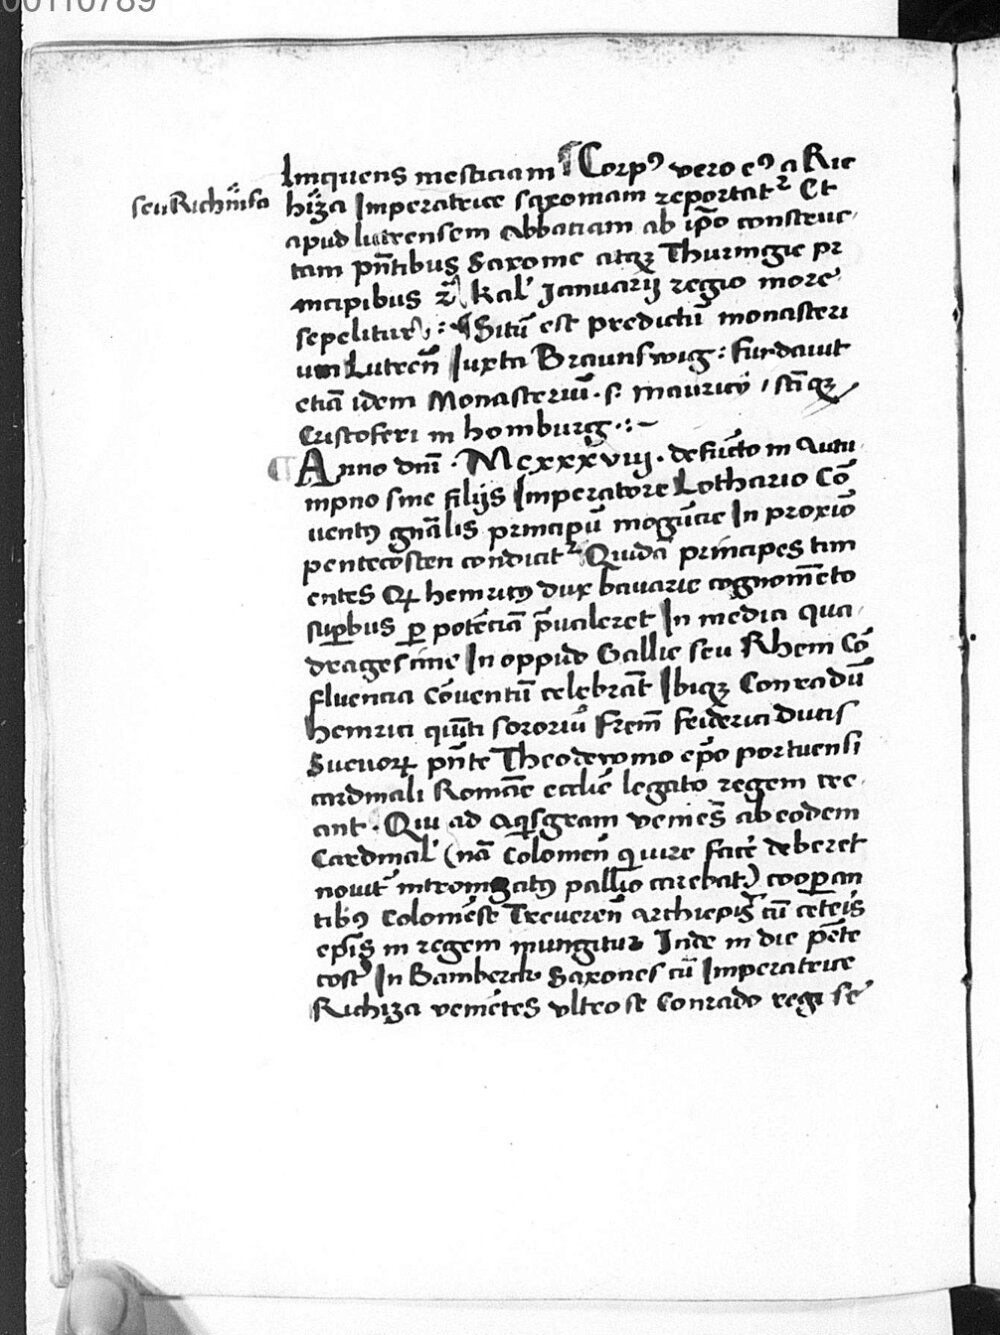 00110789
linquens mesticiam ¶ Corpꝰ vero eꝰ a Ric
seu Richinsa
hiza Imperatrice saxoniam reportatᷣ Et
apud lutrensem Abbatiam ab ip̄o construc
tam pn̄tibus Saxonie atqꝫ Thuringie pri
ncipibus Kal' Januarij regio more
sepelitur : ¶ Situ̅ est predictu̅ monasteri
um Lutren̄ Iuxta Braunswig : fundauit
etia̅ idem Monasteriu̅ . s . mauricij / sti̅qꝫ
Cristoferi in homburg . : ~
¶ Anno dni̅ . Mcxxxviij . defu̅cto in Autu
mpno sine filijs Imperatore Lothario Co̅
uentꝰ gn̅alis principu̅ mogu̅cie In proxi̅o
pentecosten condicitᷣ Quida̅ principes tim
entes Qꝫ henricꝰ dux bauarie cognome̅to
suꝑbus ꝑ pote̅cia̅ p̅ualeret In media qua
dragesime In oppido Gallie seu Rheni Co̅
fluencia co̅uentu̅ celebra̅t Ibiqꝫ Conradu̅
henrici qui̅ti sororiu̅ fre̅m feiderici ducis
Sueuoꝝ pn̅te Theodewino ep̅o portuensi
cardinali Romane eccl̅ie legato regem cre
ant . Qui ad aq̅sgram venie̅s ab eodem
Cardinal' (na̅ Colonien̄ q iure face̅ deberet
nouit̓ intronizatꝰ pallio carebat) cooꝑan
tibꝰ Colonie̅se Treueren̄ archiepis̅ cu̅ cete̅is
ep̅is in regem inungitur Inde in die pe̅te
cost' In Bamberch Saxones cu̅ Imperatrice
Richiza venie̅tes vltro se Conrado regi se̅